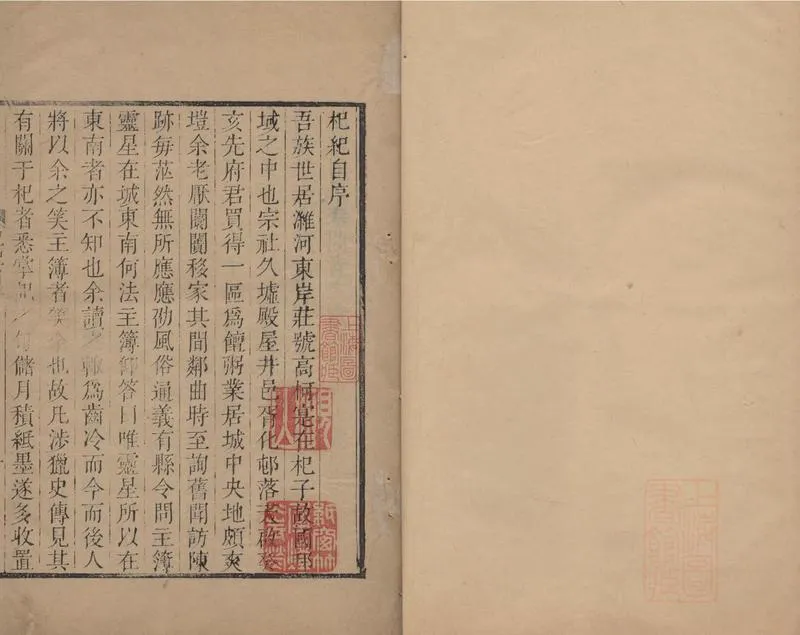 杞紀自序
吾族世居濰河東岸莊號高柯寔在杞子故國邦
域之中也宗社久墟殿屋井邑胥化邨落天啟癸
亥先府君買得一區爲饘粥業居城中央地頗爽
塏余老厭闤闠移家其間鄰曲時至詢舊聞訪陳
跡每茫然無所應應劭風俗通義有縣令問主簿
靈星在城東南何法主簿仰答曰唯靈星所以在
東南者亦不知也余讀之輒爲齒冷而今而後人
將以余之笑主簿者笑余也故凡涉獵史傳見其
有關于杞者悉掌記之旬儲月積紙墨遂多收置
上海圖書館藏